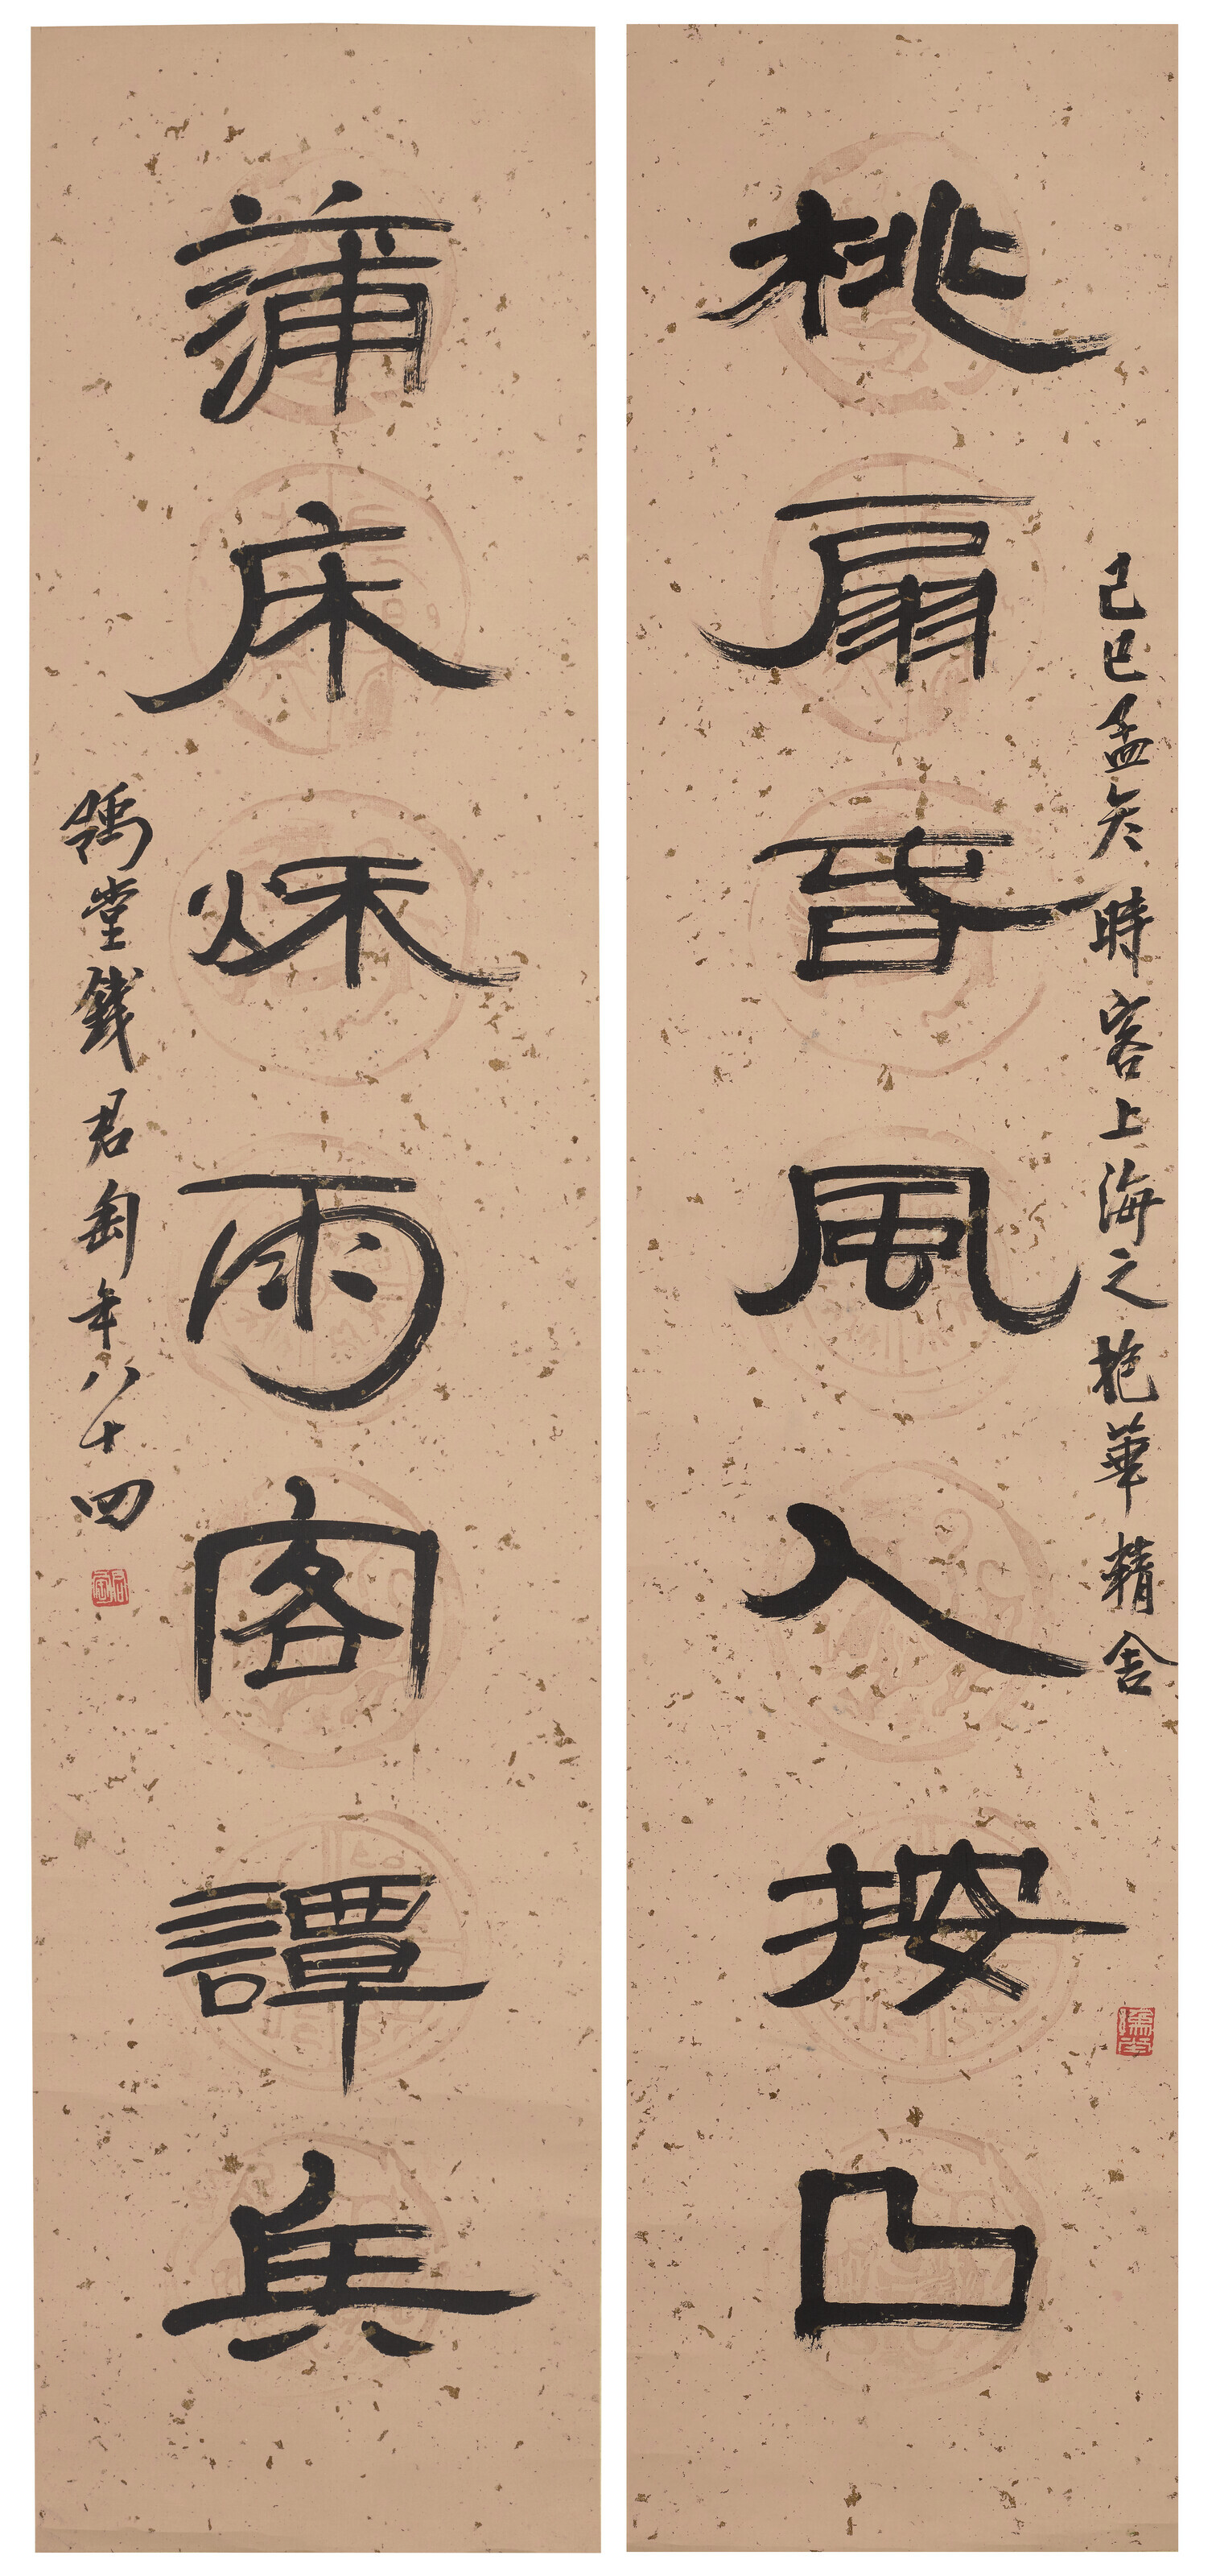 桃扇旾風人按曲
己巳孟冬時客上海之抱華精舍
蒲床秌雨客譚兵
豫堂錢君匋年八十四
君匋